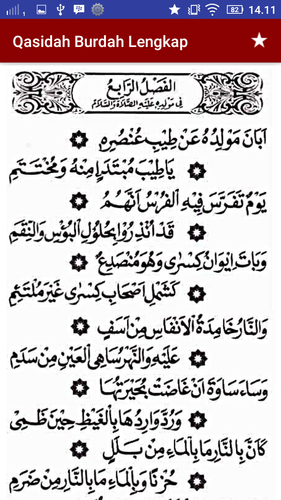 82 14.11
Qasidah Burdah Lengkap
الفَصْلُ الرَّابِعُ
فِي مَوْلِدِهِ عَلَيْهِ الصَّلَاةُ وَالسَّلَامُ
اَبَانَ مَوْلِدُهُ عَنْ طِيْبِ عُنْصُرِهِ
يَاطِيْبَ مُبْتَدَإٍ مِنْهُ وَمُخْتَتَمِ
يَوْمٌ تَفَرَّسَ فِيْهِ الْفُرْسُ اَنَّهُمُ
قَدْ اُنْذِرُوْا بِحُلُوْلِ الْبُؤْسِ وَالنِّقَمِ
وَبَاتَ اِيْوَانُ كِسْرٰى وَهُوَ مُنْصَدِعٌ
كَشَمْلِ اَصْحَابِ كِسْرٰى غَيْرَ مُلْتَئِمِ
وَالنَّارُ خَامِدَةُ الْاَنْفَاسِ مِنْ اَسَفٍ
عَلَيْهِ وَالنَّهْرُ سَاهِى الْعَيْنِ مِنْ سَدَمِ
وَسَاءَ سَاوَةَ اَنْ غَاضَتْ بُحَيْرَتُهَا
وَرُدَّ وَارِدُهَا بِالْغَيْظِ حِيْنَ ظَمِى
كَاَنَّ بِالنَّارِ مَا بِالْمَاءِ مِنْ بَلَلٍ
حُزْنًا وَبِالْمَاءِ مَا بِالنَّارِ مِنْ ضَرَمِ